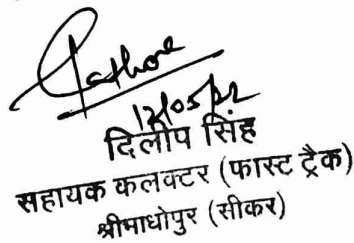 Rathore
दिलीप सिंह
सहायक कलक्टर (फास्ट ट्रैक)
श्रीमाधोपुर (सीकर)